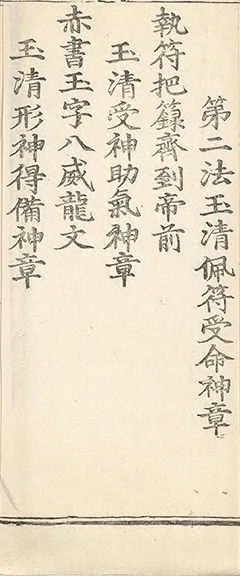 第二法玉清佩符受命神章
執符把籙齊到帝前
玉清受神助氣神章
赤書玉字八威龍文
玉清形神得備神章